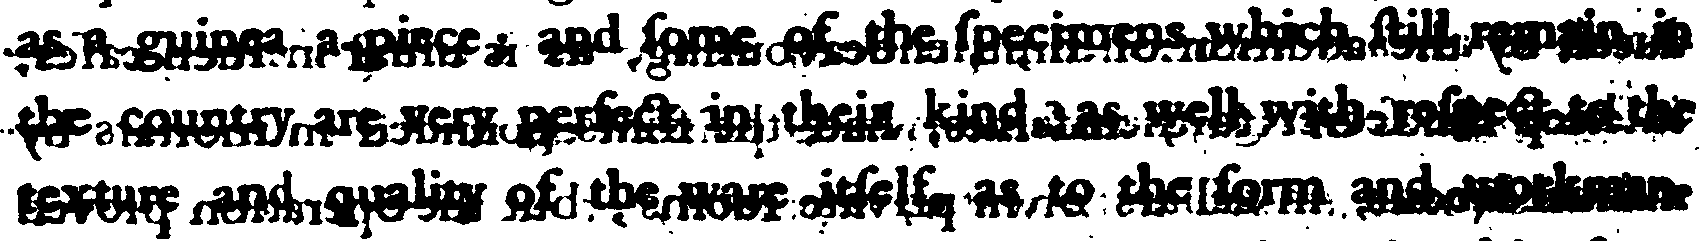 as a guinea a piece; and ſome of the ſpecimens which ſtill remain in
the country are very perfect in their kind, as well with reſpect to the
texture and quality of the ware itſelf, as to the form and workman-